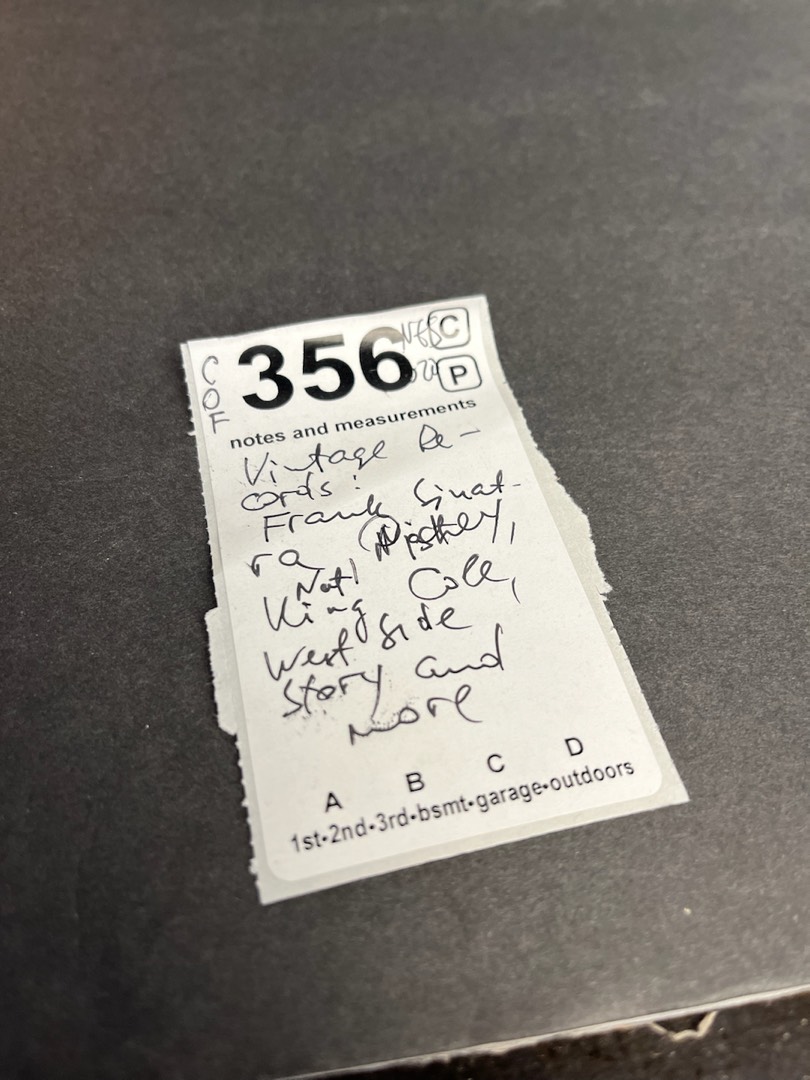 COF
356
C
P
notes and measurements
Vintage Re-
cords:
Frank Sinat-
ra
Nat
King Cole,
West Side
Story and
more
A B C D
1st•2nd•3rd•bsmt•garage•outdoors